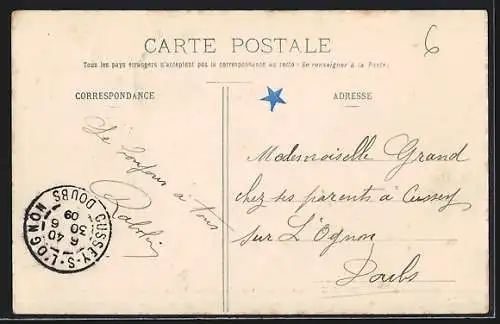 6
CARTE POSTALE
Tous les pays étrangers n'acceptent pas la correspondance au recto: (Se renseigner à la Poste).
CORRESPONDANCE
ADRESSE
à tous
Mademoiselle Grand
chez ses parents à Cussey
sur L'Ognon
Doubs
CUSSEY-S-L'OGNON
DOUBS
6 40
30
6
09